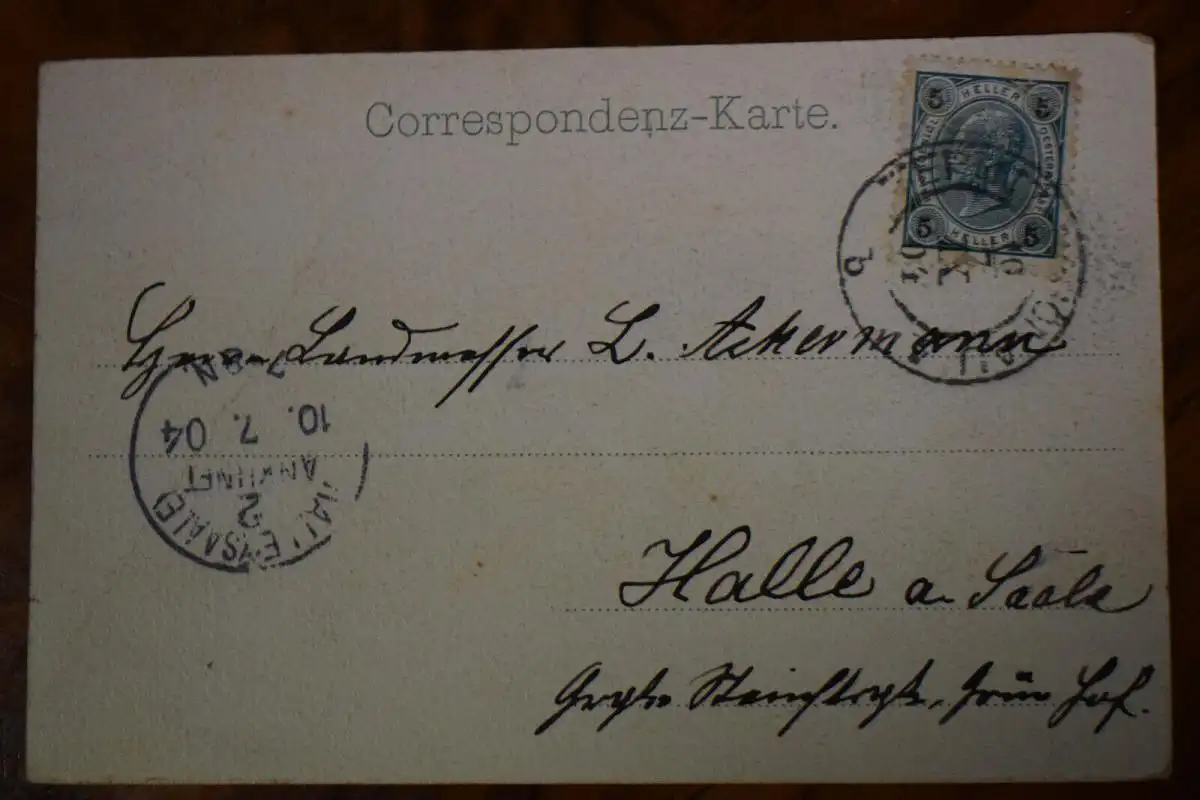 Correspondenz-Karte.
5 HELLER 5
5 HELLER 5
04
Herrn Landmesser L. Ackermann
HALLE (SAALE)
2
ANKUNFT
10. 7. 04
7-8N
Halle a. Saale
Große Steinstraße, Grün Hof.